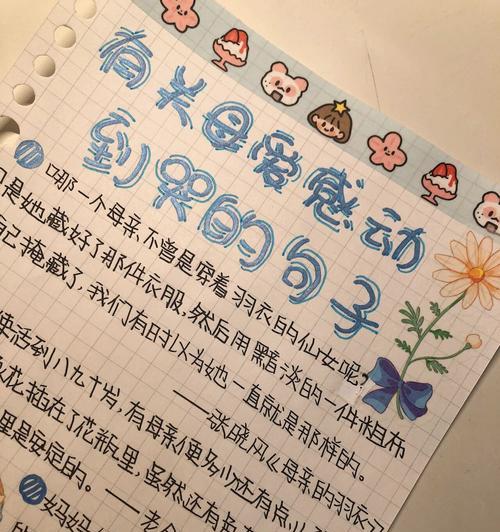 有关母爱感动
到哭的句子
哪一个母亲不曾是穿着羽衣的仙女呢?
是她藏好了那件衣服,然后用黯淡的一件粗布
己掩藏了,我们有时以为她一直就是那样的。
——张晓风《母亲的羽衣》
活到八九十岁,有母亲便多少还有点
花插在了花瓶里,虽然还有
里是安定的。——老
妈妈